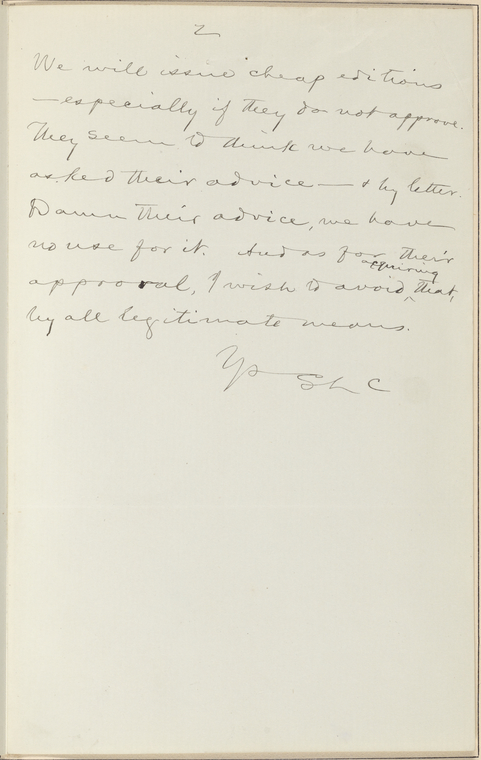 2
We will issue cheap editions
—especially if they do not approve.
They seem to think we have
asked their advice — & by letter.
Damn their advice, we have
no use for it. And as for their
acquiring
approval, I wish to avoid ‸ that,
by all legitimate means.
Ys
SLC